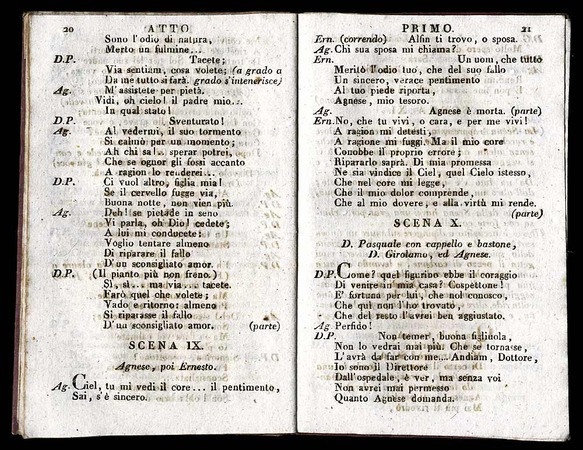 20 ATTO
Sono l'odio di natura,
Merto un fulmine...
D.P. Tacete;
Via sentiam, cosa volete; (a grado a
Da me tutto si farà. grado s'intenerisce)
Ag. M'assistete per pietà.
Vidi, oh cielo! il padre mio...
In qual stato!
D.P. Sventurato!
Ag. Al vedermi, il suo tormento
Si calmò per un momento;
Ah chi sa!.. sperar potrei,
Che se ognor gli fossi accanto
A ragion lo renderei...
D.P. Ci vuol altro, figlia mia!
Se il cervello fugge via,
Buona notte, non vien più.
Ag. Deh! se pietade in seno
Vi parla, oh Dio! cedete;
A lui mi conducete:
Voglio tentare almeno
Di riparare il fallo
D'un sconsigliato amor.
D.P. (Il pianto più non freno.)
Sì, sì... ma via... tacete.
Farò quel che volete;
Vado e ritorno: almeno
Si riparasse il fallo
D'un sconsigliato amor. (parte)
SCENA IX.
Agnese, poi Ernesto.
Ag. Ciel, tu mi vedi il core... il pentimento,
Sai, s'è sincero.
PRIMO. 21
Ern. (correndo) Alfin ti trovo, o sposa.
Ag. Chi sua sposa mi chiama?
Ern. Un uom, che tutto
Meritò l'odio tuo, che del suo fallo
Un sincero, verace pentimento
Al tuo piede riporta,
Agnese, mio tesoro.
Ag. Agnese è morta. (parte)
Ern. No, che tu vivi, o cara, e per me vivi!
A ragion mi detesti,
A ragione mi fuggi. Ma il mio core
Conobbe il proprio errore;
Ripararlo saprà. Di mia promessa
Ne sia vindice il Ciel, quel Cielo istesso,
Che nel core mi legge,
Che il mio dolor comprende,
Che al mio dovere, e alla virtù mi rende.
(parte)
SCENA X.
D. Pasquale con cappello e bastone,
D. Girolamo, ed Agnese.
D.P. Come? quel figurino ebbe il coraggio
Di venire in mia casa? Cospettone!
E' fortuna per lui, che nol conosco,
Che quì non l'ho trovato,
Che del resto l'avrei ben aggiustato.
Ag. Perfido!
D.P. Non temer, buona figliuola,
Non lo vedrai mai più. Che se tornasse,
L'avrà da far con me... Andiam, Dottore,
Io sono il Direttore
Dall'ospedale, è ver, ma senza voi
Non avrei mai permesso
Quanto Agnese domanda.